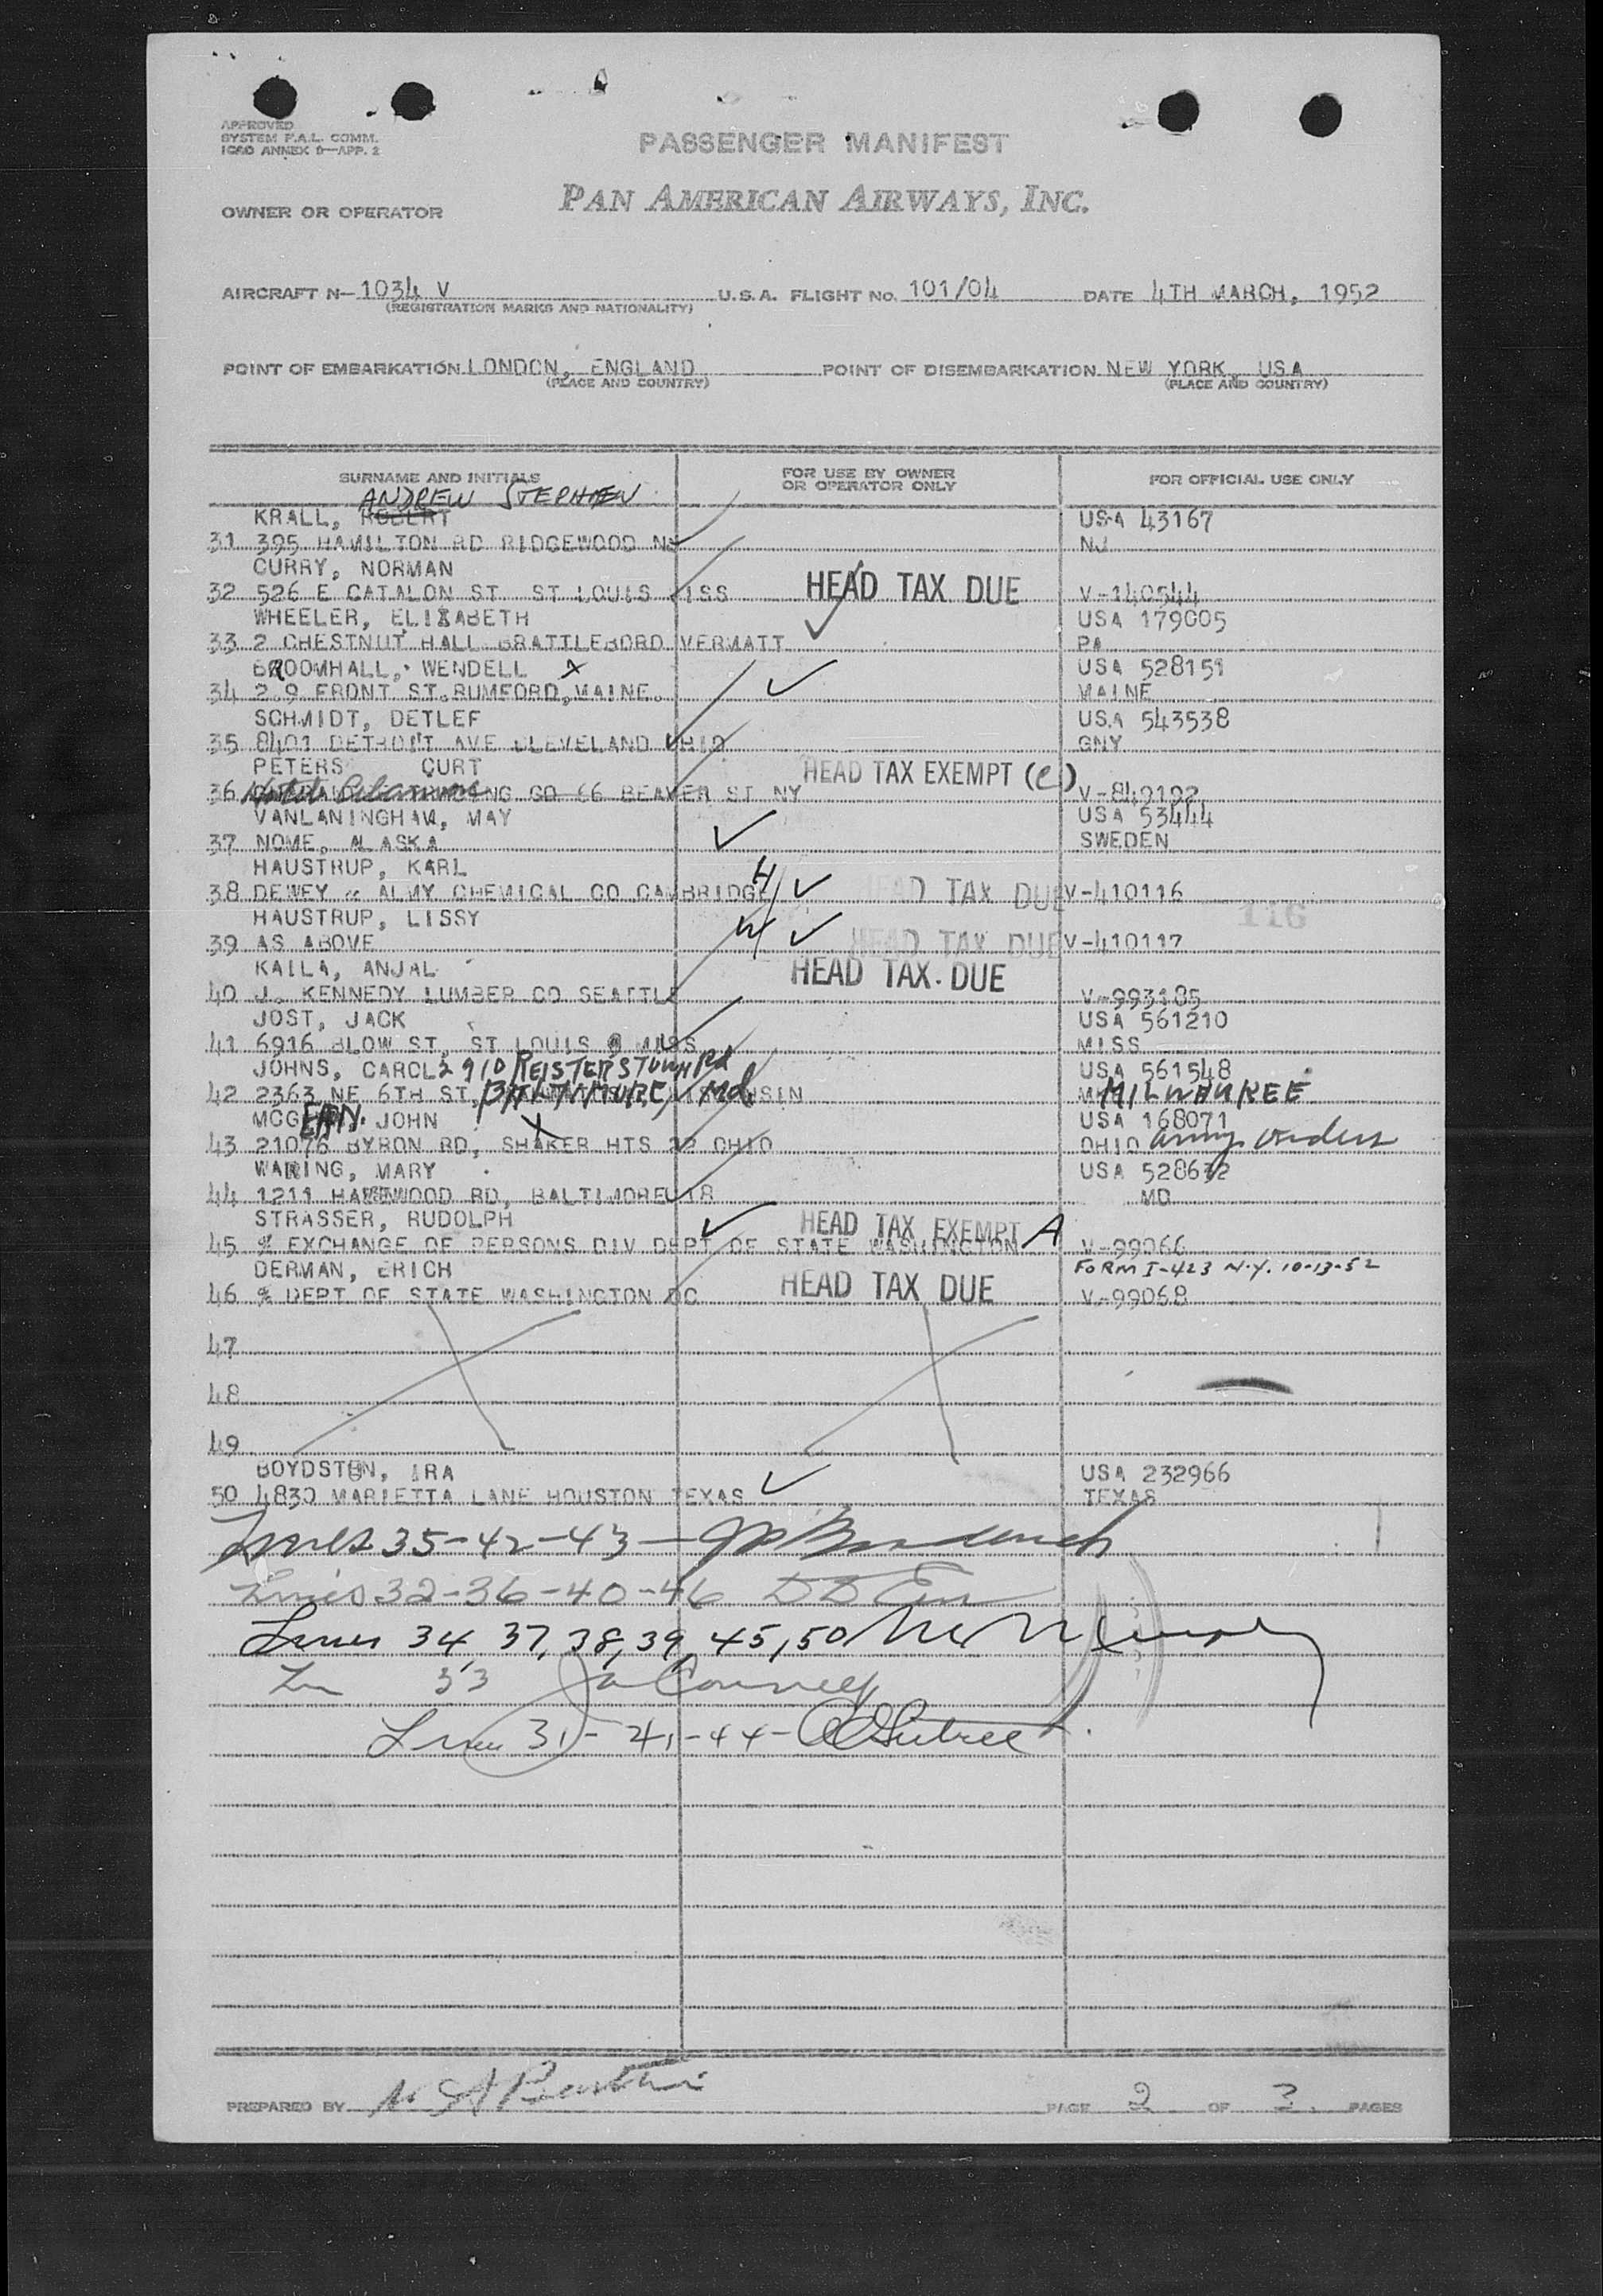 APPROVED
SYSTEM F.A.L. COMM.
ICAO ANNEX 9—APP. 2
PASSENGER MANIFEST
OWNER OR OPERATOR PAN AMERICAN AIRWAYS, INC.
AIRCRAFT N— 1034 V U.S.A. FLIGHT NO. 101/04 DATE 4TH MARCH, 1952
(REGISTRATION MARKS AND NATIONALITY)
POINT OF EMBARKATION LONDON, ENGLAND POINT OF DISEMBARKATION NEW YORK, USA
(PLACE AND COUNTRY) (PLACE AND COUNTRY)
SURNAME AND INITIALS FOR USE BY OWNER OR OPERATOR ONLY FOR OFFICIAL USE ONLY
ANDREW STEPHEN
KRALL, ROBERT USA 43167
31 395 HAMILTON RD RIDGEWOOD NJ NJ
CURRY, NORMAN
32 526 E CATALON ST. ST LOUIS MISS HEAD TAX DUE V-140544
WHEELER, ELIZABETH USA 179005
33 2 CHESTNUT HALL BRATTLEBORO VERMATT PA
BROOMHALL, WENDELL X USA 528151
34 2 9 FRONT ST. RUMFORD, MAINE. MAINE
SCHMIDT, DETLEF USA 543538
35 8401 DETROIT AVE CLEVELAND OHIO GNY
PETERS CURT HEAD TAX EXEMPT (e)
36 Hotel 66 BEAVER ST NY V-849192
VANLANINGHAM, MAY USA 53444
37 NOME, ALASKA SWEDEN
HAUSTRUP, KARL
38 DEWEY & ALMY CHEMICAL CO CAMBRIDGE H HEAD TAX DUE V-410116
HAUSTRUP, LISSY 116
39 AS ABOVE HEAD TAX DUE V-410117
KAILA, ANJAL HEAD TAX DUE
40 J. KENNEDY LUMBER CO SEATTLE V-993185
JOST, JACK USA 561210
41 6916 BLOW ST, ST LOUIS 9 MISS MISS
JOHNS, CAROL 2910 REISTERSTOWN Rd USA 561548
42 2363 NE 6TH ST, BALTIMORE, Md MILWAUKEE
MCGEAN, JOHN X USA 168071
43 21076 BYRON RD, SHAKER HTS 22 OHIO OHIO Army orders
WARING, MARY USA 528672
44 1211 WOOD RD, BALTIMORE 18 MD
STRASSER, RUDOLPH HEAD TAX EXEMPT A
45 % EXCHANGE OF PERSONS DIV DEPT OF STATE WASHINGTON V-99066
DERMAN, ERICH FORM I-423 N.Y. 10-13-52
46 % DEPT OF STATE WASHINGTON DC HEAD TAX DUE V-99068
47
48
49
BOYDSTON, IRA USA 232966
50 4830 MARIETTA LANE HOUSTON TEXAS TEXAS
Lines 35-42-43—
Lines 32-36-40-46
Lines 34, 37, 38, 39, 45, 50
33
Lines 31-41-44-
PREPARED BY PAGE 2 OF 3 PAGES